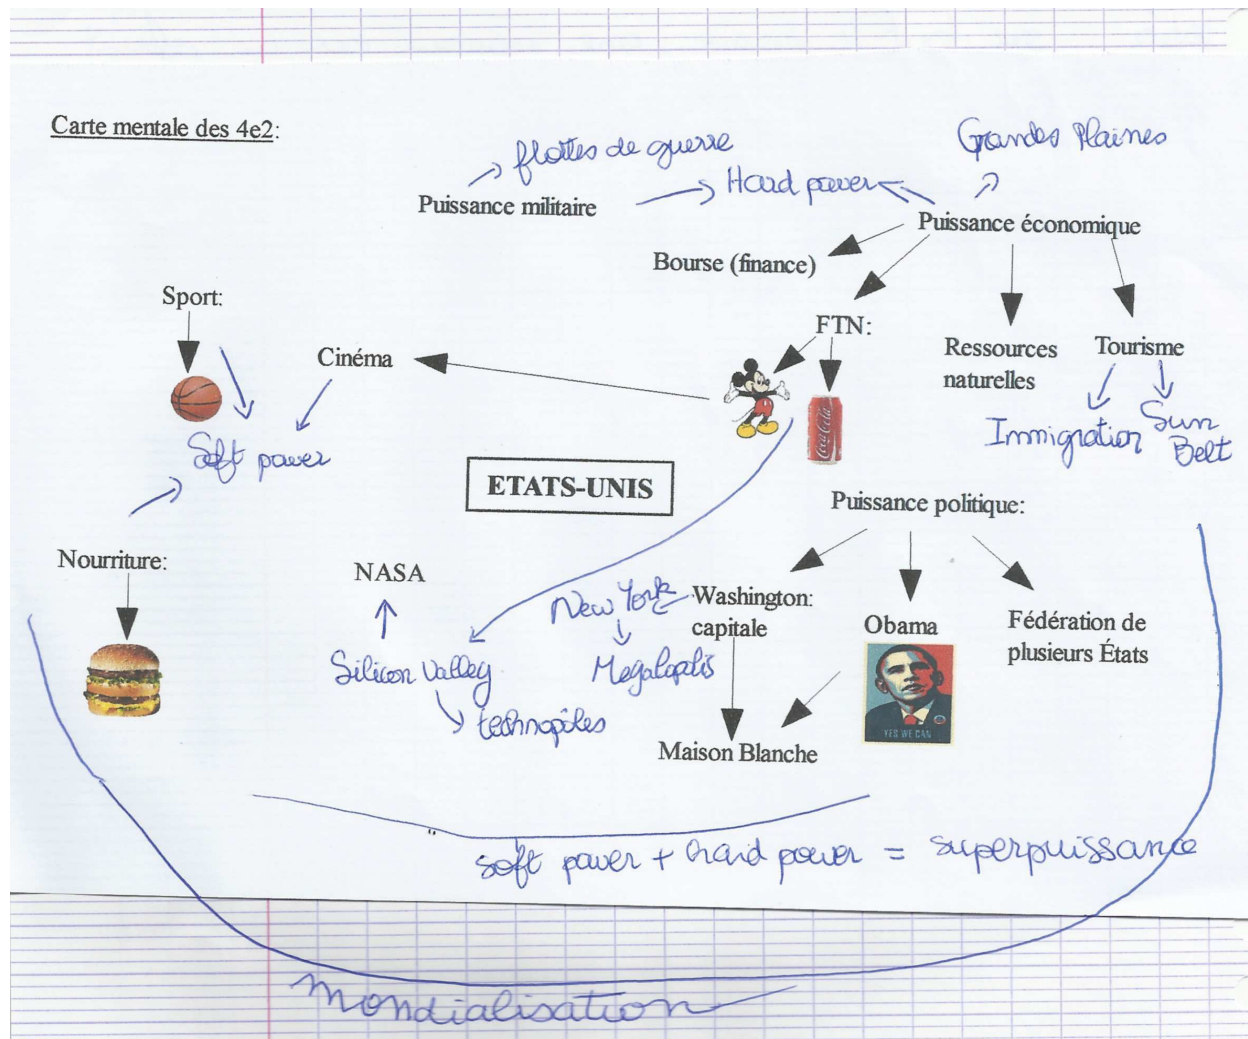 Carte mentale des 4e2:
flottes de guerre
Grandes Plaines
Puissance militaire
Hard power
Puissance économique
Bourse (finance)
Sport:
FTN:
Cinéma
Ressources
naturelles
Tourisme
Coca-Cola
Immigration
Sun
Belt
Soft power
ETATS-UNIS
Puissance politique:
Nourriture:
NASA
New York
Washington:
capitale
Obama
Fédération de
plusieurs États
Silicon Valley
Megalopolis
technopôles
YES WE CAN
Maison Blanche
soft power + hard power = superpuissance
mondialisation